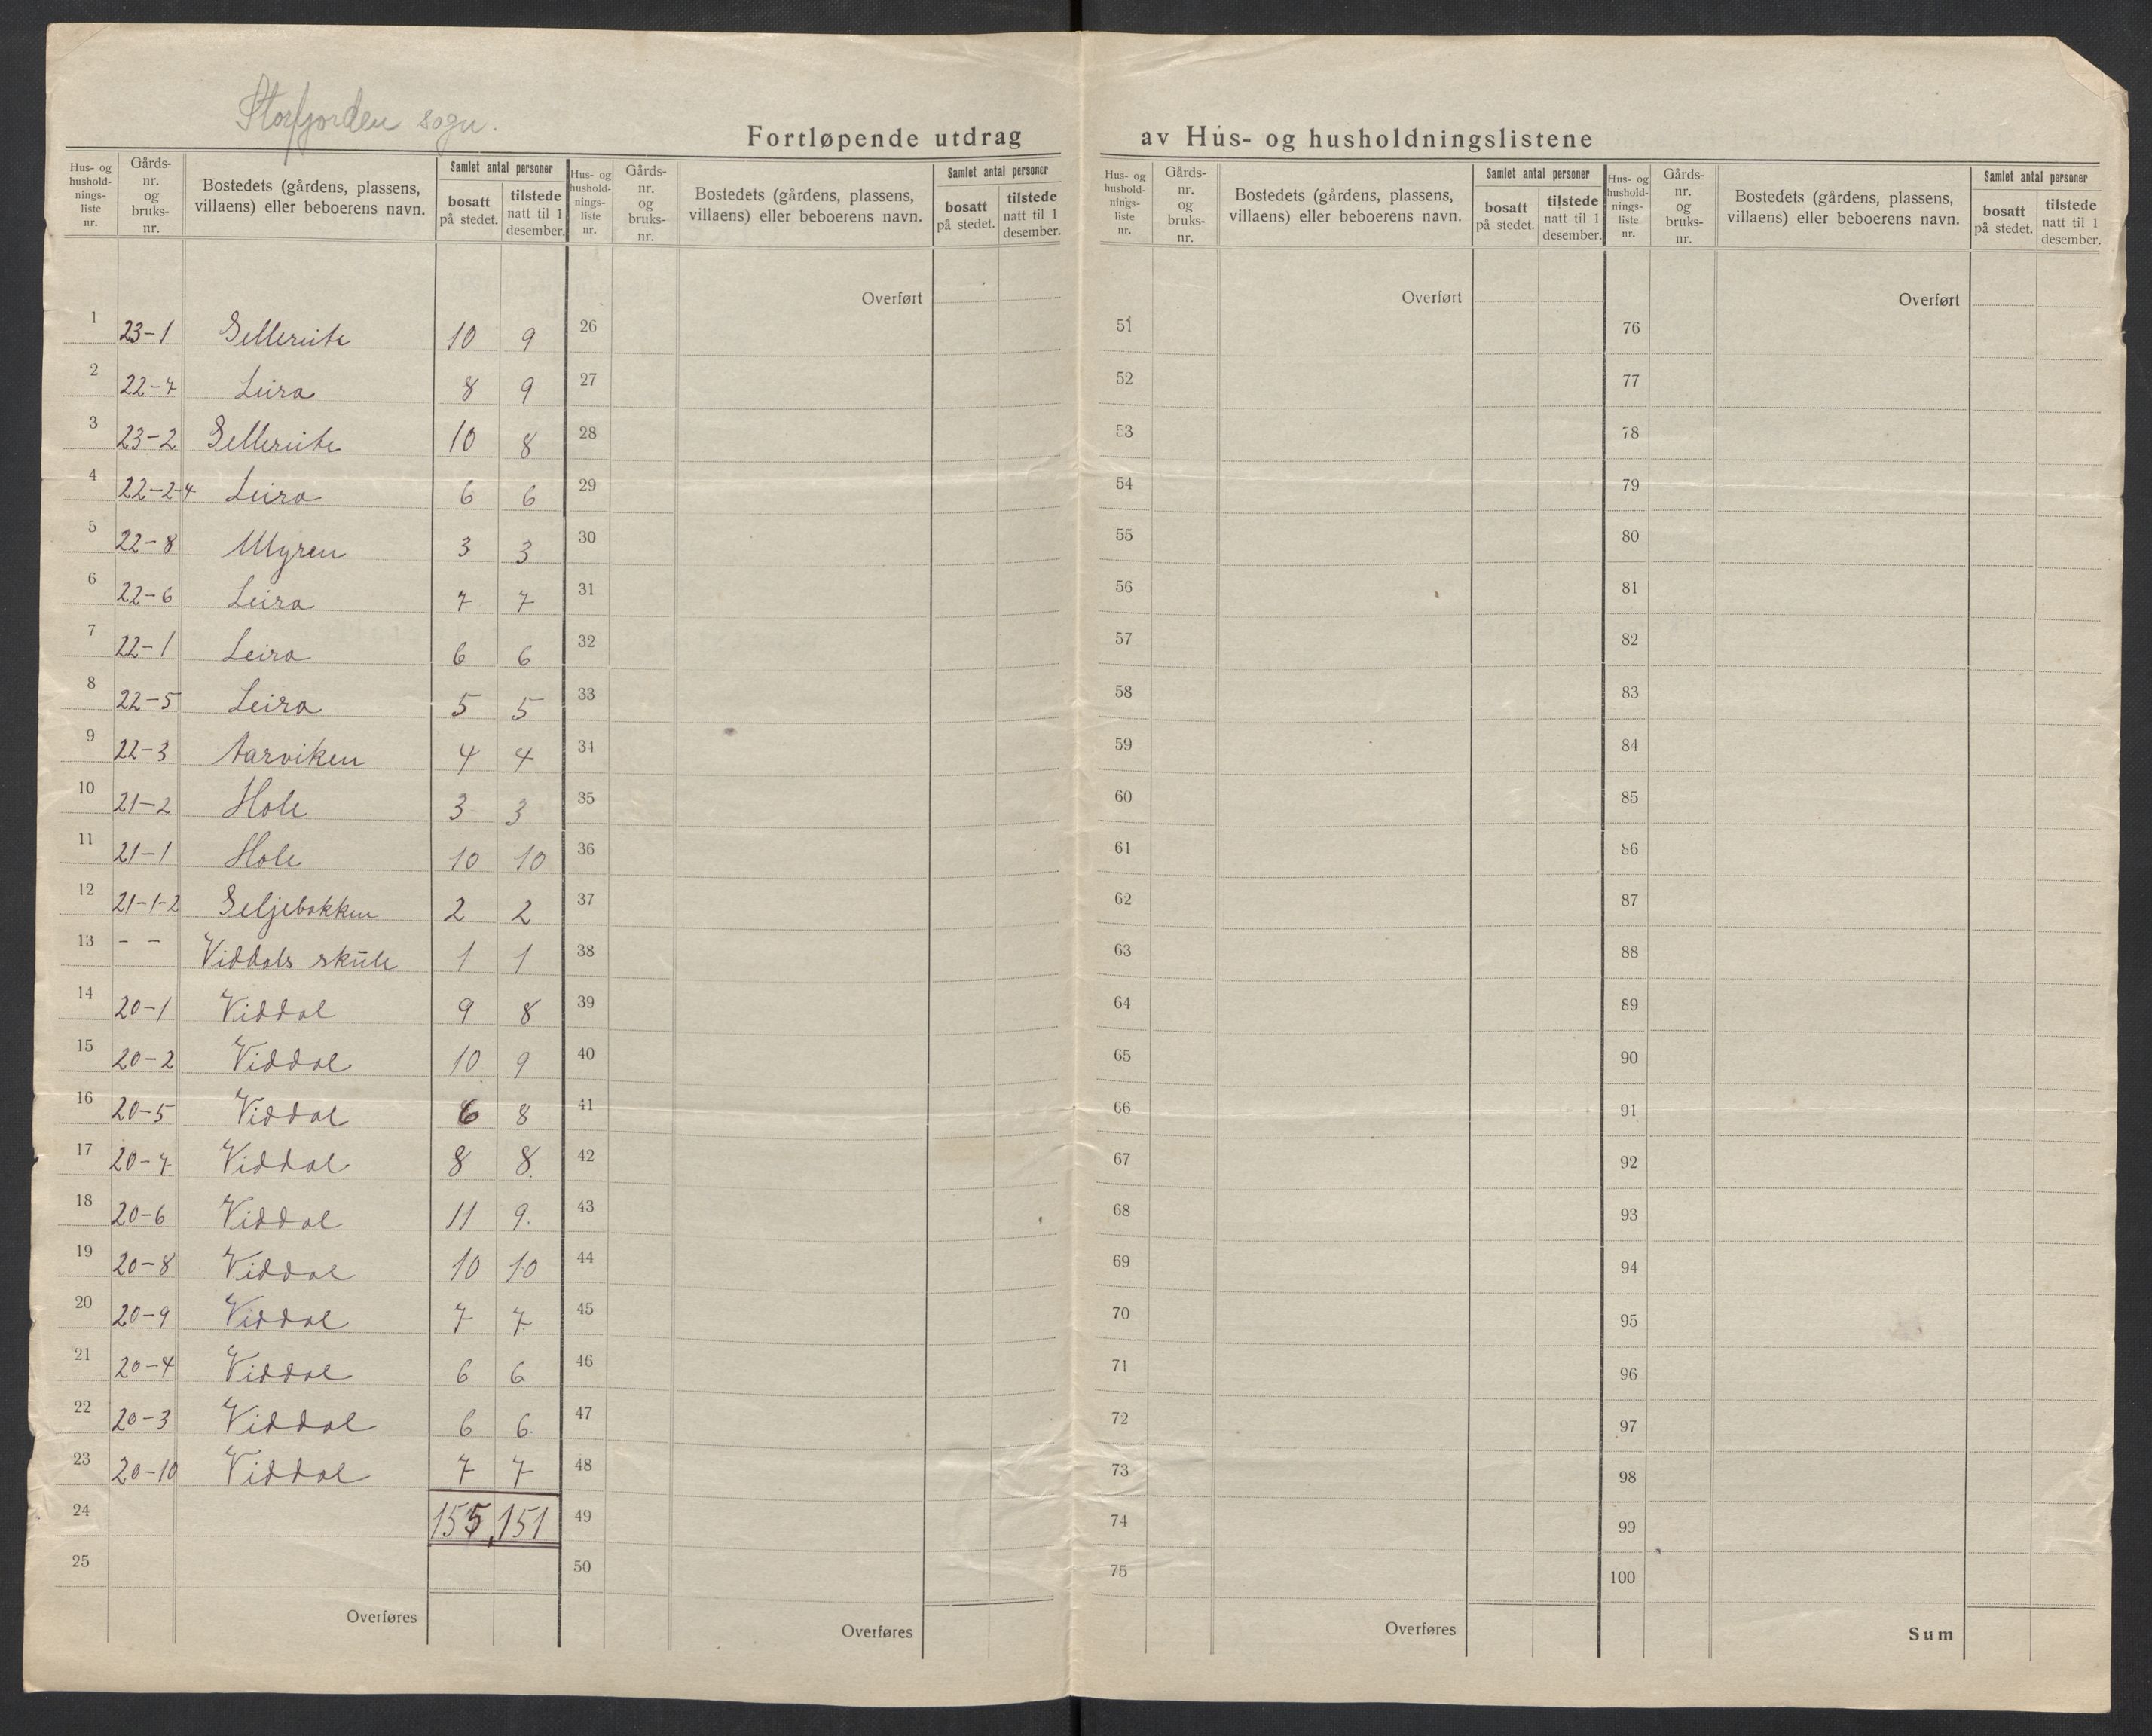 Storfjorden sogn.
Fortløpende utdrag av Hus- og husholdningslistene
Hus- og hushold-nings-liste nr. | Gårds-nr. og bruks-nr. | Bostedets (gårdens, plassens, villaens) eller beboerens navn. | Samlet antal personer | bosatt på stedet. | tilstede natt til 1 desember.
Hus- og hushold-nings-liste nr. | Gårds-nr. og bruks-nr. | Bostedets (gårdens, plassens, villaens) eller beboerens navn. | Samlet antal personer | bosatt på stedet. | tilstede natt til 1 desember.
Hus- og hushold-nings-liste nr. | Gårds-nr. og bruks-nr. | Bostedets (gårdens, plassens, villaens) eller beboerens navn. | Samlet antal personer | bosatt på stedet. | tilstede natt til 1 desember.
Hus- og hushold-nings-liste nr. | Gårds-nr. og bruks-nr. | Bostedets (gårdens, plassens, villaens) eller beboerens navn. | Samlet antal personer | bosatt på stedet. | tilstede natt til 1 desember.
Overført Overført Overført
1 23-1 Sellereite 10 9 26 51 76
2 22-7 Leira 8 9 27 52 77
3 23-2 Sellereite 10 8 28 53 78
4 22-2-4 Leira 6 6 29 54 79
5 22-8 Myren 3 3 30 55 80
6 22-6 Leira 7 7 31 56 81
7 22-1 Leira 6 6 32 57 82
8 22-5 Leira 5 5 33 58 83
9 22-3 Aarviken 4 4 34 59 84
10 21-2 Hole 3 3 35 60 85
11 21-1 Hole 10 10 36 61 86
12 21-1-2 Seljebakken 2 2 37 62 87
13 - - Viddals skŭle 1 1 38 63 88
14 20-1 Viddal 9 8 39 64 89
15 20-2 Viddal 10 9 40 65 90
16 20-5 Viddal 6 8 41 66 91
17 20-7 Viddal 8 8. 42 67 92
18 20-6 Viddal 11 9. 43 68 93
19 20-8 Viddal 10 10 44 69 94
20 20-9 Viddal 7 7. 45 70 95
21 20-4 Viddal 6 6 46 71 96
22 20-3 Viddal 6 6. 47 72 97
23 20-10 Viddal 7 7 48 73 98
24 155 151 49 74 99
25 50 75 100
Overføres Overføres Overføres Sum